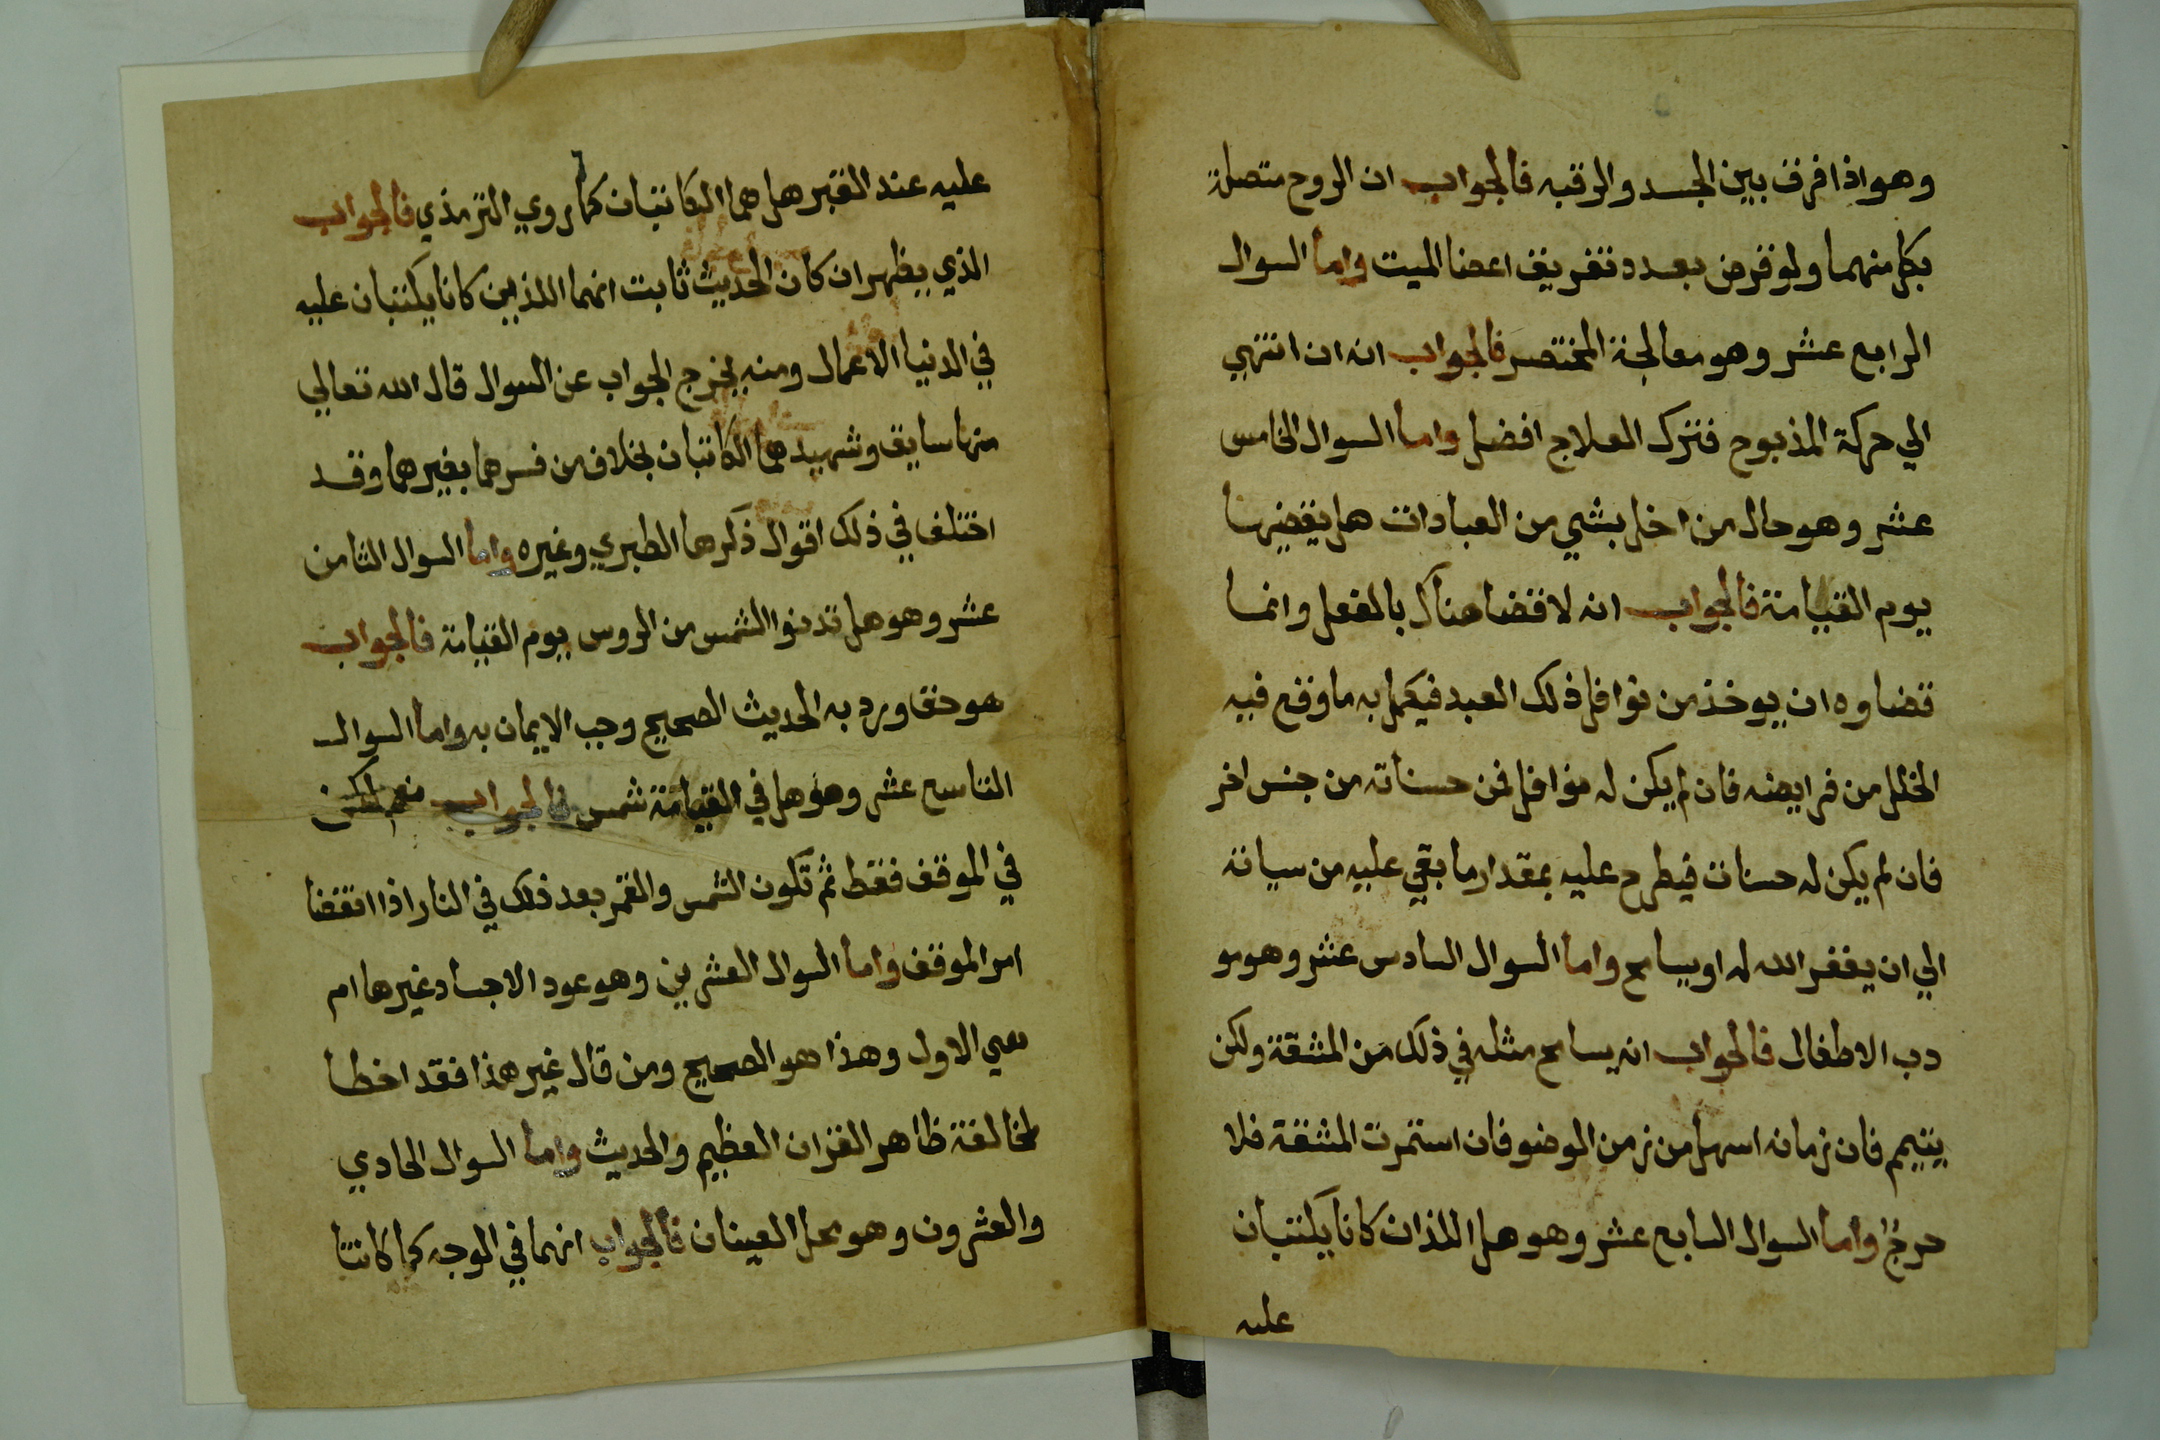 وهو اذا فرق بين الجسد والرقبه فالجواب ان الروح متصلة
بكل منهما ولو فرض بعدد تفريق اعضا الميت واما السوال
الرابع عشر وهو معالجة المختصر فالجواب انه ان انتهي
الي حركة المذبوح فترك العلاج افضل واما السوال الخامس
عشر وهو حال من اخل بشي من العبادات هل يقضيها
يوم القيامة فالجواب انه لا قضا هناك بالفعل وانما
قضاوه ان يوخذ من نوافل ذلك العبد فيكمل به ما وقع فيه
الخلل من فرايضه فان لم يكن له نوافل فمن حسناته من جنس اخر
فان لم يكن له حسنات فيطرح عليه بمقدار ما بقي عليه من سياته
الي ان يغفر الله له او يسامح واما السوال السادس عشر وهو مو
دب الاطفال فالجواب انه يسامح مثله في ذلك من المشقة ولكن
يتيمم فان زمانه اسهل من زمن الوضو فان استمرت المشقة فلا
حرج واما السوال السابع عشر وهو هل اللذان كانا يكتبان
عليه
عليه عند القبر هل هما الكاتبان كما روي الترمذي فالجواب
الذي يظهر ان كان الحديث ثابت انهما اللذين كانا يكتبان عليه
في الدنيا الاعمال ومنه يخرج الجواب عن السوال قال الله تعالي
منها سايق وشهيد هما الكاتبان بخلاف من فسرهما بغيرهما وقد
اختلف في ذلك اقوال ذكرها الطبري وغيره واما السوال الثامن
عشر وهو هل تدنوا الشمس من الروس يوم القيامة فالجواب
هو حق ورد به الحديث الصحيح وجب الايمان به واما السوال
التاسع عشر وهو هل في القيامة شمس فالجواب نعم لكن
في الموقف فقط ثم تكون الشمس والقمر بعد ذلك في النار اذا انقضا
امر الموقف واما السوال العشرين وهو عود الاجساد غيرها ام
هي الاول وهذا هو الصحيح ومن قال غير هذا فقد اخطا
لمخالفة ظاهر القران العظيم والحديث واما السوال الحادي
والعشرون وهو محل العينان فالجواب انهما في الوجه كما كانتا